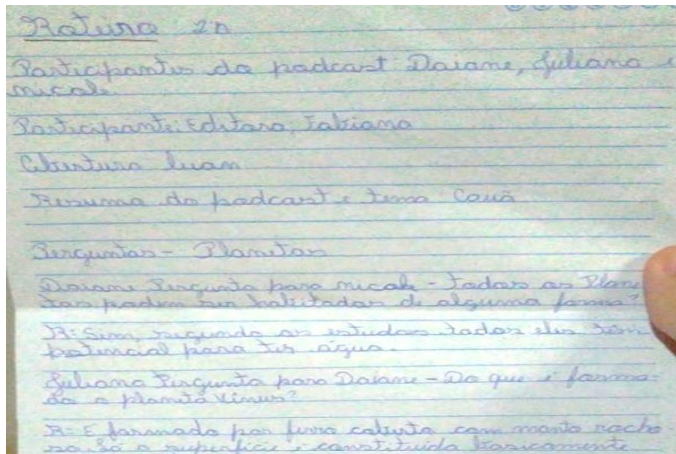 Roteiro 2B
Participantes do podcast: Daiane, Juliana e
nicale
Participante: Editora, Fabiana
Abertura luan
Resumo do podcast e tema Cauã
Perguntas - Planetas
Daiane Pergunta para nicale - Todos os Plane
tas podem ser habitados de alguma forma?
R: Sim, segundo os estudos todos eles têm
potencial para ter água.
Juliana Pergunta para Daiane - Do que é forma-
do o planeta Vênus?
R: É formado por ferro coberto com manto rocho
so. Só a superfície é constituída basicamente